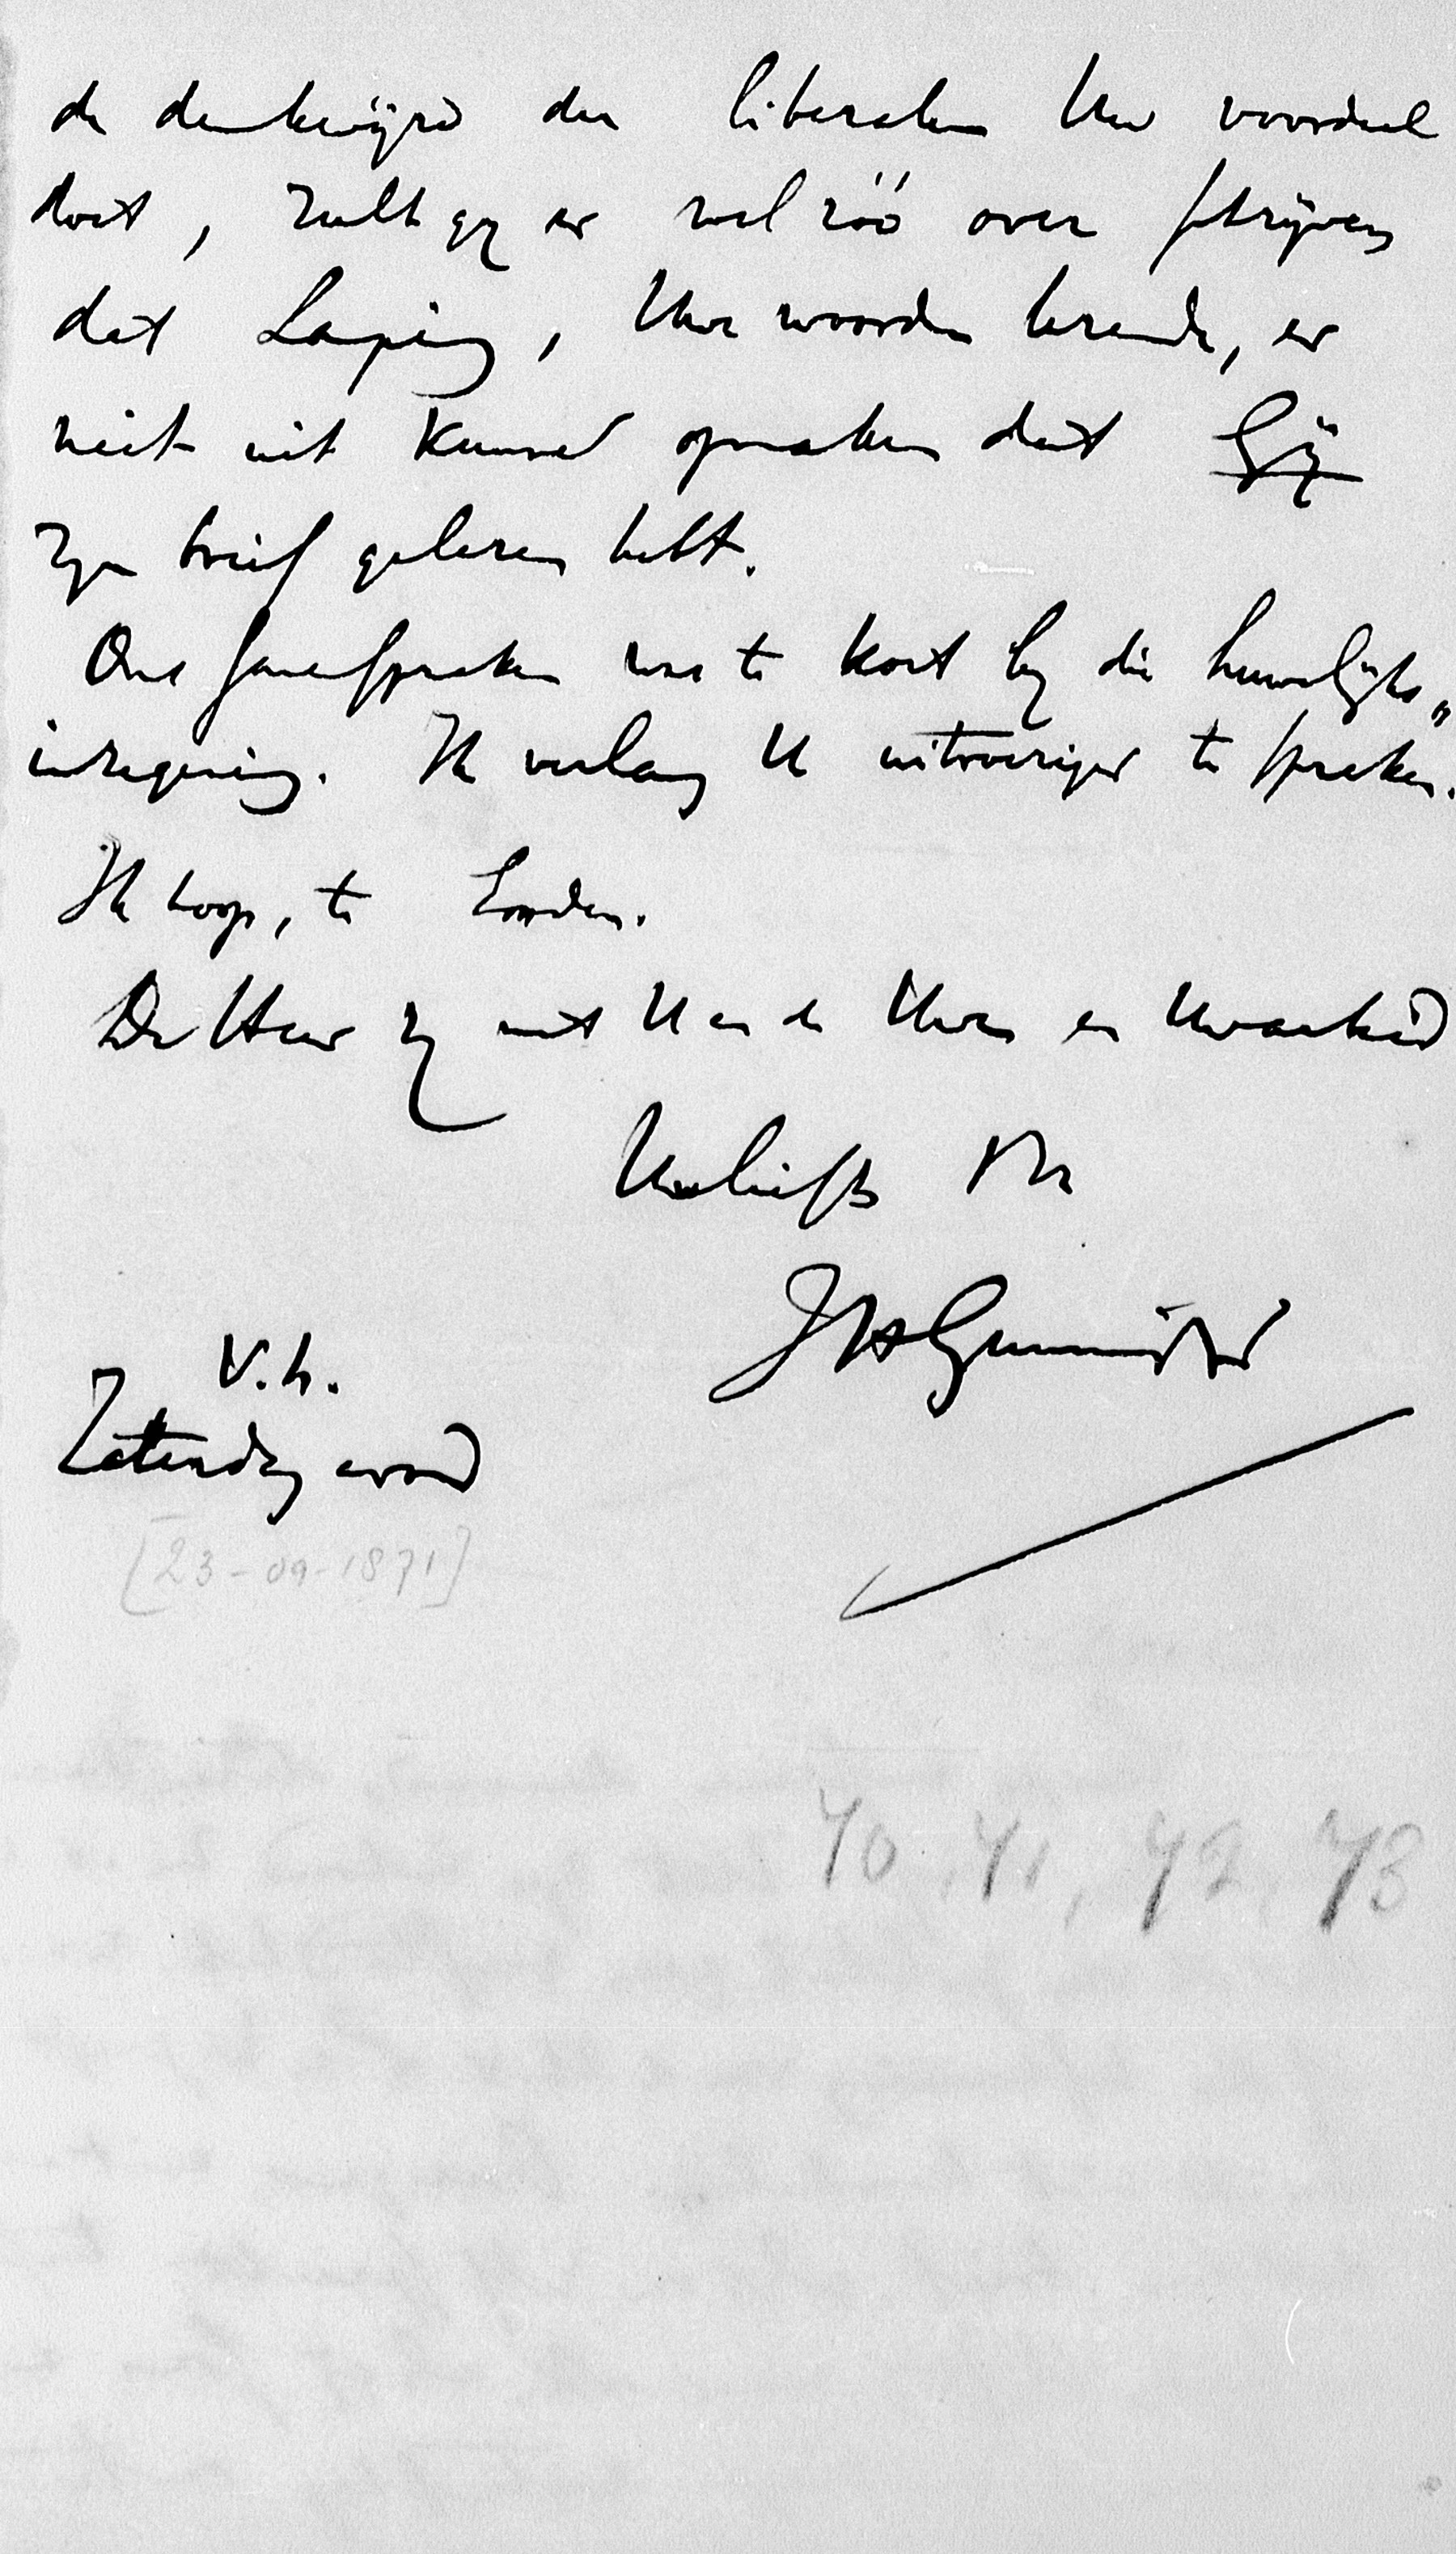 de denkwijze der liberalen Uw voordeel
doet, zult gy er wel zóó over schrijven
dat Lamping, Uwe woorden lezende, er
niet uit kunne opmaken dat Gÿ
zyn brief gelezen hebt.
Ons samenspreken was te kort by die huwelijks„
inzegening. Ik verlang U uitvoeriger te spreken.
Ik hoop, te Londen.
De Heer zy met U en de Uwen en Uw arbeid
Uw liefh. Vr
JHGunning
V.h.
Zaterdag avond
[23-09-1871]
70, 71, 72, 73